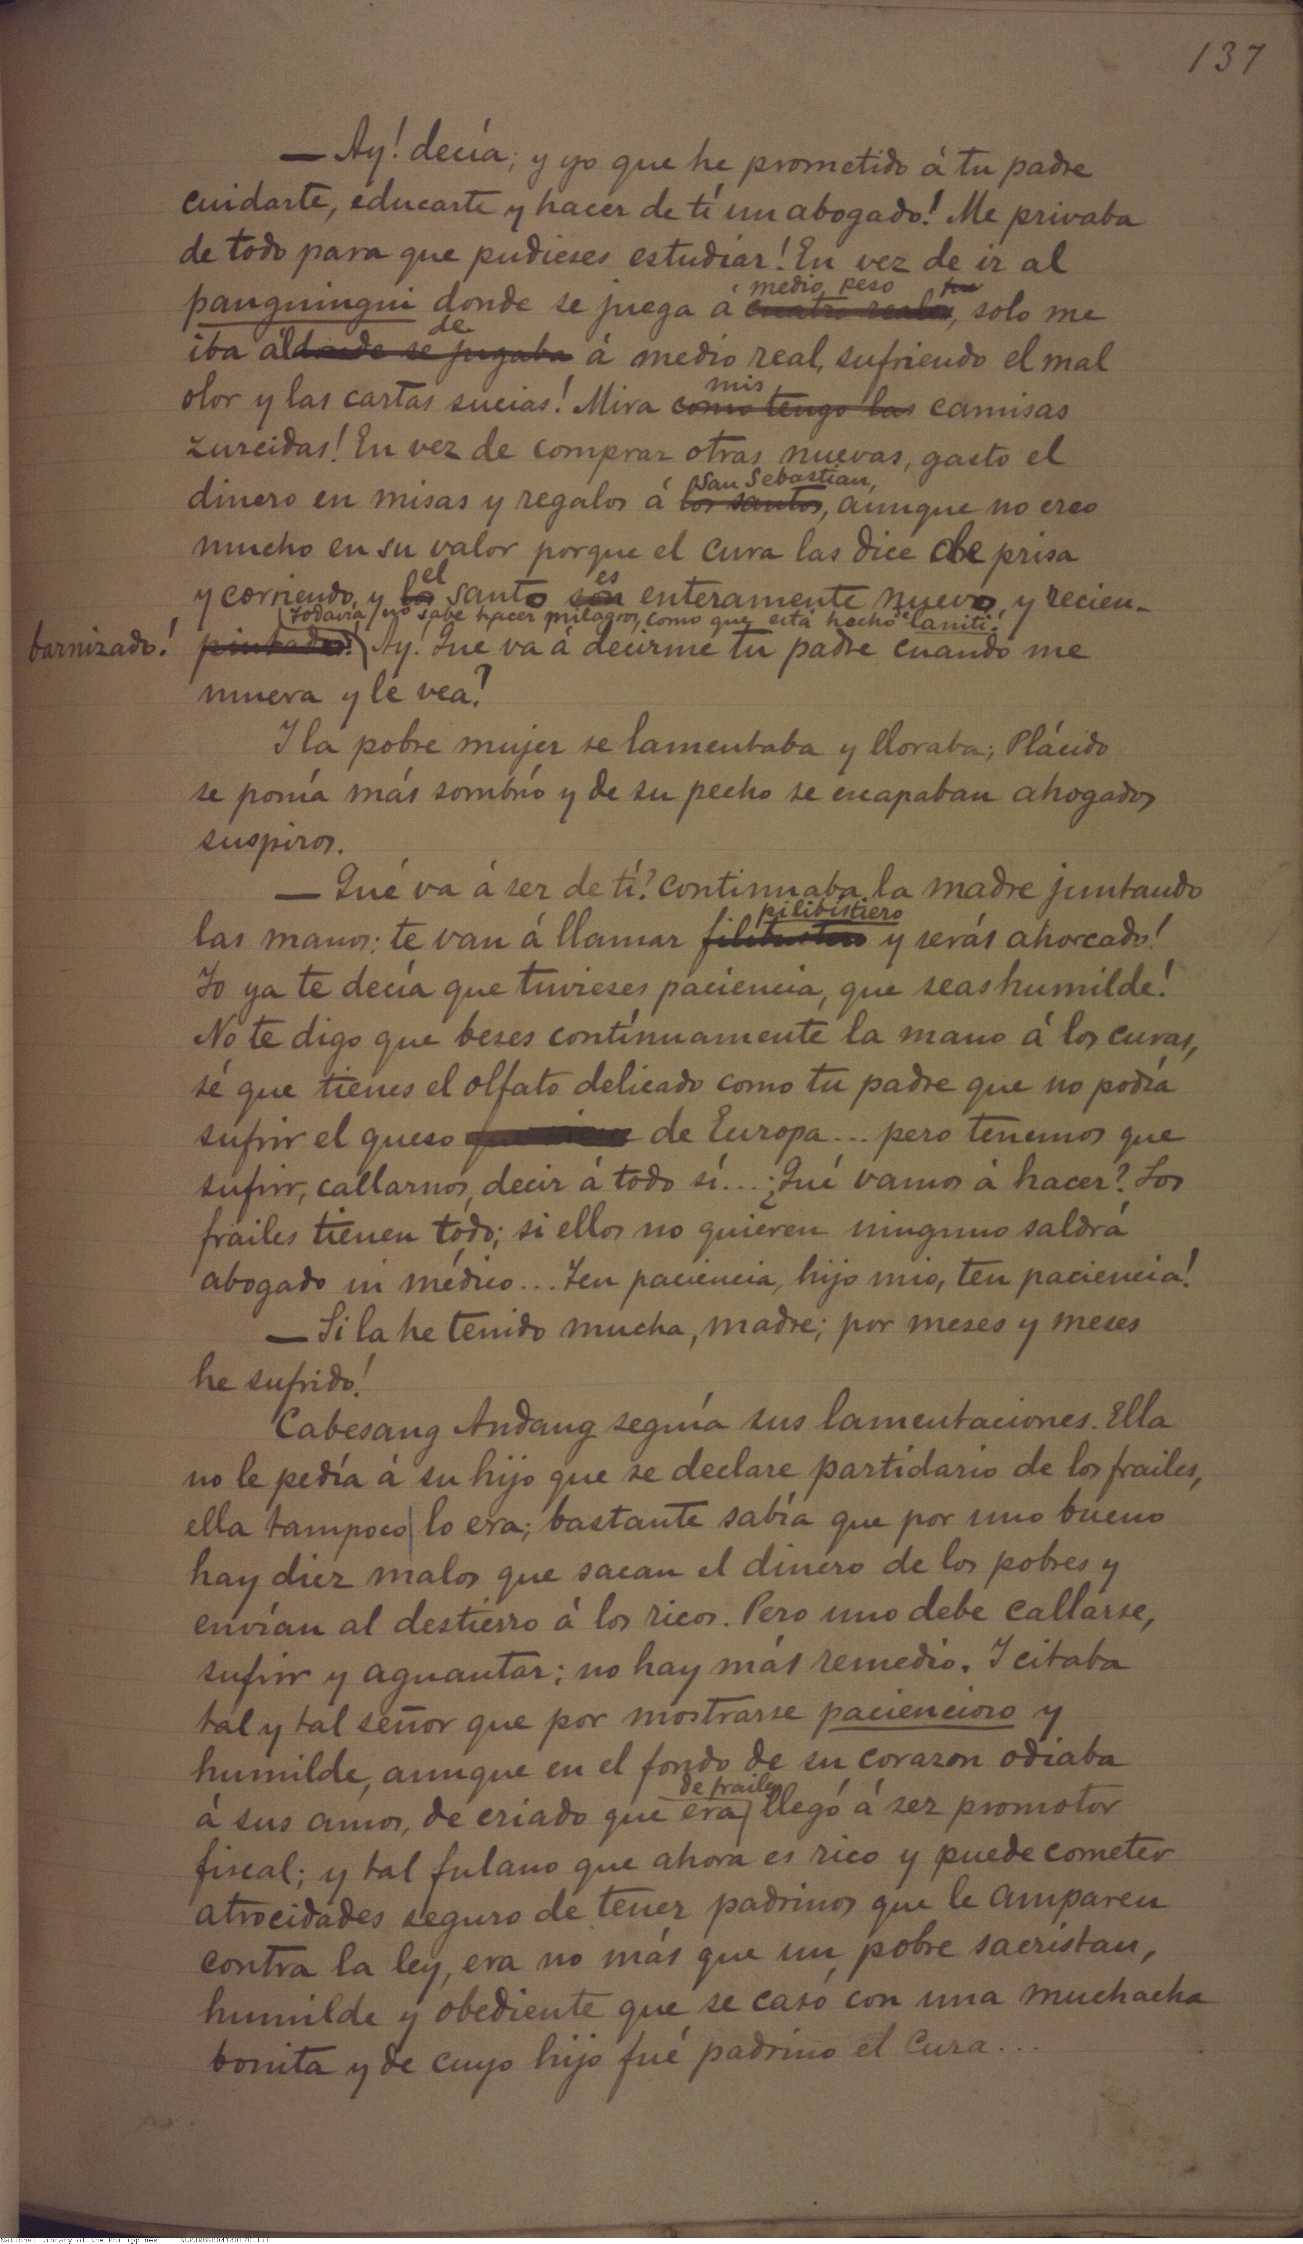 137
— Ay! decía; y yo que he prometido á tu padre
cuidarte, educarte y hacer de tí un abogado! Me privaba
de todo para que pudieses estudiar! En vez de ir al
medio peso
panguingui donde se juega á cuatro reales, solo me
de
iba al donde se jugaba á medio real, sufriendo el mal
mis
olor y las cartas sucias! Mira como tengo las camisas
zurcidas! En vez de comprar otras nuevas, gasto el
San Sebastian,
dinero en misas y regalos á los santos, aunque no creo
mucho en su valor porque el cura las dice de prisa
el es
y corriendo, y los santo son enteramente nuevo, y recien-
Todavía no sabe hacer milagros, como que está hecho laniti!
barnizado! pintados! Ay! Qué va á decirme tu padre cuando me
muera y le vea?
Y la pobre mujer se lamentaba y lloraba; Plácido
se ponía más sombrío y de su pecho se escapaban ahogados
suspiros.
— Qué va á ser de tí? continuaba la madre juntando
pilibistiero
las manos: te van á llamar filibustero y serás ahorcado!
Yo ya te decía que tuvieses paciencia, que seas humilde!
No te digo que beses contínuamente la mano á los curas,
sé que tienes el olfato delicado como tu padre que no podía
sufrir el queso de Europa... pero tenemos que
sufrir, callarnos, decir á todo sí... ¿Qué vamos á hacer? Los
frailes tienen todo; si ellos no quieren ninguno saldrá
abogado ni médico... Ten paciencia, hijo mio, ten paciencia!
— Si la he tenido mucha, madre; por meses y meses
he sufrido!
Cabesang Andang seguía sus lamentaciones. Ella
no le pedía á su hijo que se declare partidario de los frailes,
ella tampoco lo era; bastante sabía que por uno bueno
hay diez malos que sacan el dinero de los pobres y
envían al destierro á los ricos. Pero uno debe callarse,
sufrir y aguantar; no hay más remedio. Y citaba
tal y tal señor que por mostrarse paciencioso y
humilde, aunque en el fondo de su corazon odiaba
de frailes
á sus amos, de criado que era llegó á ser promotor
fiscal; y tal fulano que ahora es rico y puede cometer
atrocidades seguro de tener padrinos que le amparen
contra la ley, era no más que un pobre sacristan,
humilde y obediente que se casó con una muchacha
bonita y de cuyo hijo fué padrino el Cura...